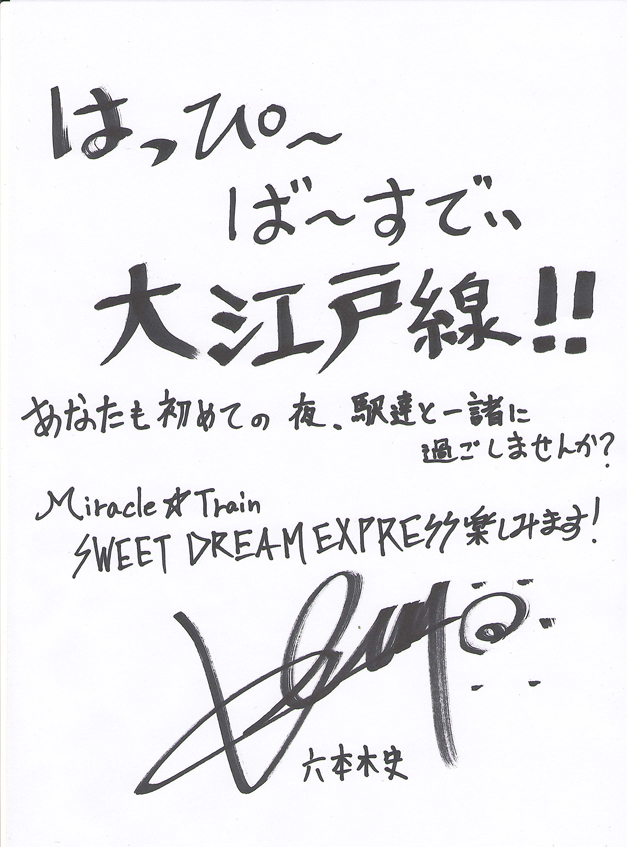 はっぴ〜
ば〜すでぃ
大江戸線!!
あなたも初めての夜、駅達と一諸に
過ごしませんか?
Miracle☆Train
SWEET DREAM EXPRESS楽しみます!
六本木史